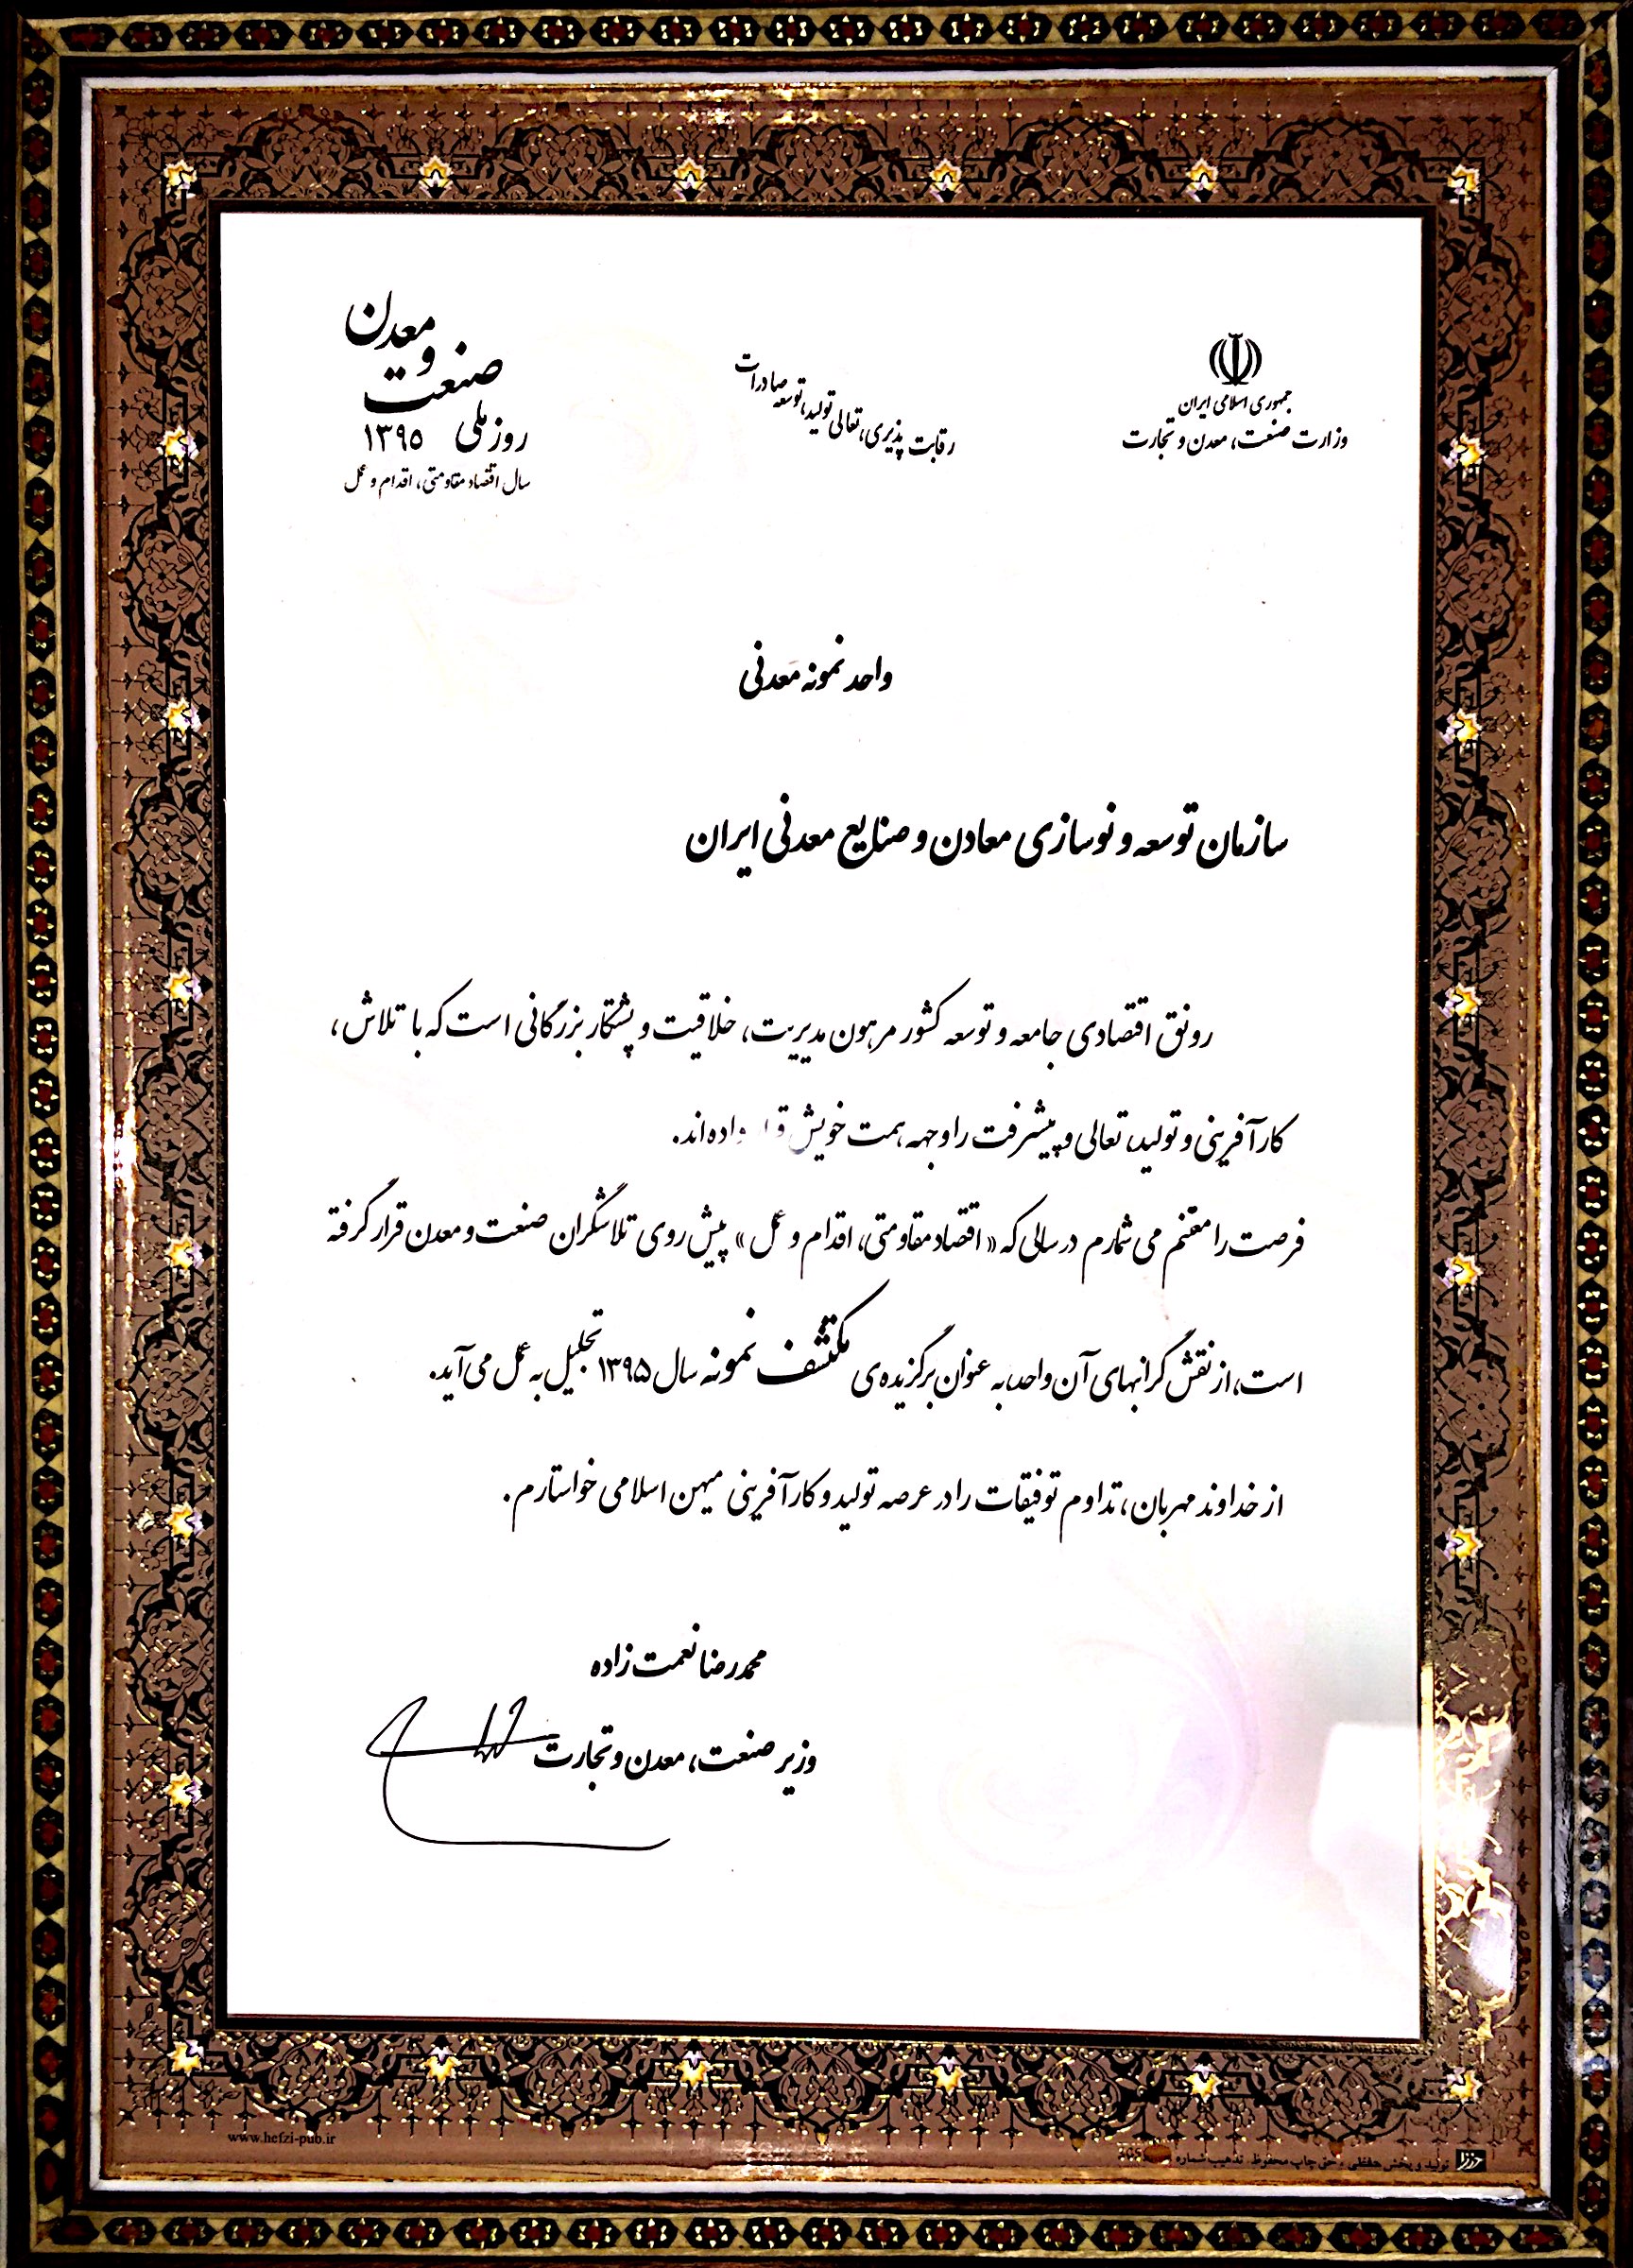 جمهوری اسلامی ایران
وزارت صنعت، معدن و تجارت
رقابت پذیری، تعالی تولید، توسعه صادرات
صنعت و معدن
روز ملی ۱۳۹۵
سال اقتصاد مقاومتی، اقدام و عمل
واحد نمونه معدنی
سازمان توسعه و نوسازی معادن و صنایع معدنی ایران
رونق اقتصادی جامعه و توسعه کشور مرهون مدیریت، خلاقیت و پشتکار بزرگانی است که با تلاش،
کارآفرینی و تولید، تعالی و پیشرفت را وجهه همت خویش قرار داده‌اند.
فرصت را مغتنم می شمارم در سالی که «اقتصاد مقاومتی، اقدام و عمل» پیش روی تلاشگران صنعت و معدن قرار گرفته
است، از نقش گرانبهای آن واحد، به عنوان برگزیده‌ی مکتشف نمونه سال ۱۳۹۵ تجلیل به عمل می‌آید.
از خداوند مهربان، تداوم توفیقات را در عرصه تولید و کارآفرینی میهن اسلامی خواستارم.
محمدرضا نعمت زاده
وزیر صنعت، معدن و تجارت
www.hefzi-pub.ir
تولید و پخش حفظی - حق چاپ محفوظ تذهیب شماره